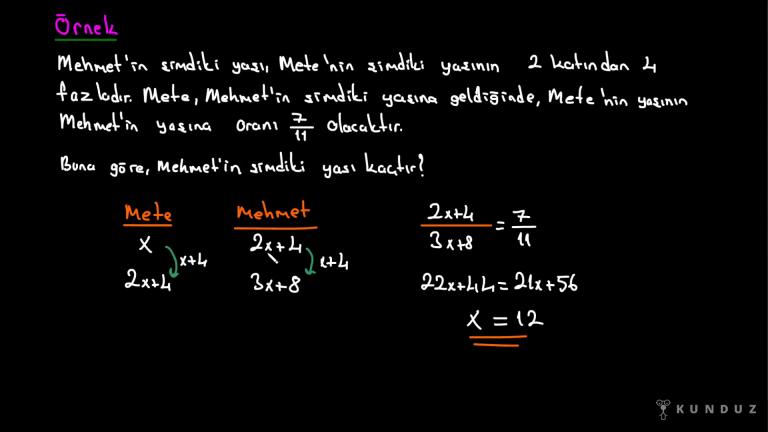 Örnek
Mehmet'in şimdiki yaşı, Mete'nin şimdiki yaşının 2 katından 4
fazladır. Mete, Mehmet'in şimdiki yaşına geldiğinde, Mete'nin yaşının
Mehmet'in yaşına oranı 7/11 olacaktır.
Buna göre, Mehmet'in şimdiki yaşı kaçtır?
Mete Mehmet
x 2x+4
x+4 x+4
2x+4 3x+8
2x+4/3x+8 = 7/11
22x+44=21x+56
x = 12
KUNDUZ